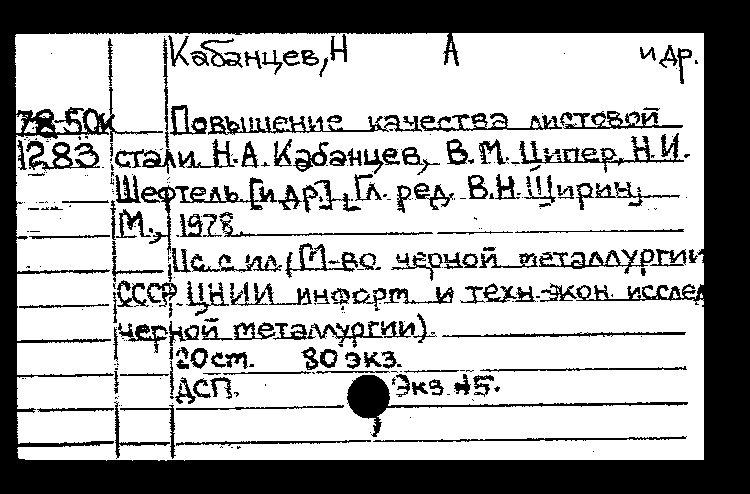 Кабанцев, Н А и др.
78-50к Повышение качества листовой
1283 стали. Н.А. Кабанцев, В.М. Ципер, Н.И.
Шефтель [и др.], Гл. ред. В.Н. Ширин,
М., 1978.
11с. с ил. (М-во черной металлургии
СССР ЦНИИ информ. и техн.-экон. исслед
черной металлургии).
20 ст. 80 экз.
ДСП. Экз. №5.